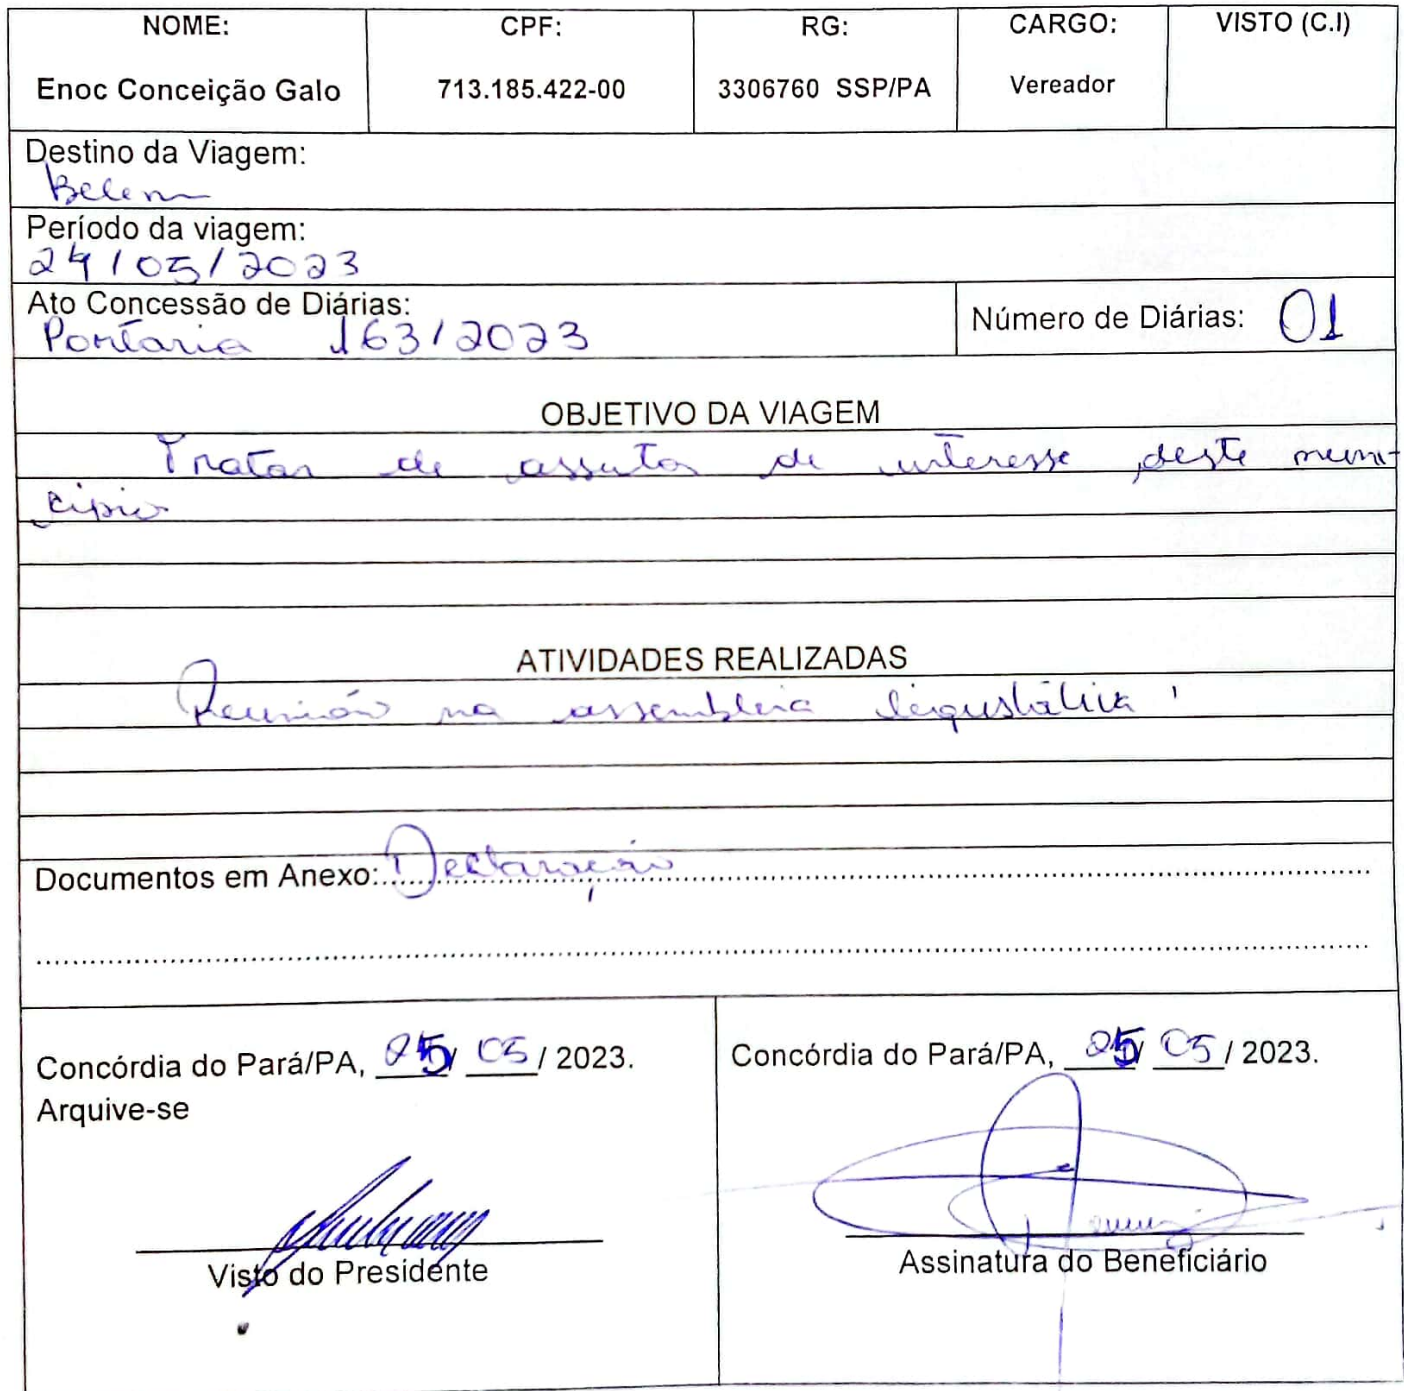 NOME: CPF: RG: CARGO: VISTO (C.I)
Enoc Conceição Galo 713.185.422-00 3306760 SSP/PA Vereador
Destino da Viagem:
Belem
Período da viagem:
24/05/2023
Ato Concessão de Diárias:
Portaria 163/2023
Número de Diárias: 01
OBJETIVO DA VIAGEM
Tratar de assuto de interesse deste muni-
cipio
ATIVIDADES REALIZADAS
Reunião na assembleia
Documentos em Anexo: Declaração
Concórdia do Pará/PA, 25/ 05/ 2023.
Arquive-se
Visto do Presidente
Concórdia do Pará/PA, 25/ 05/ 2023.
Assinatura do Beneficiário